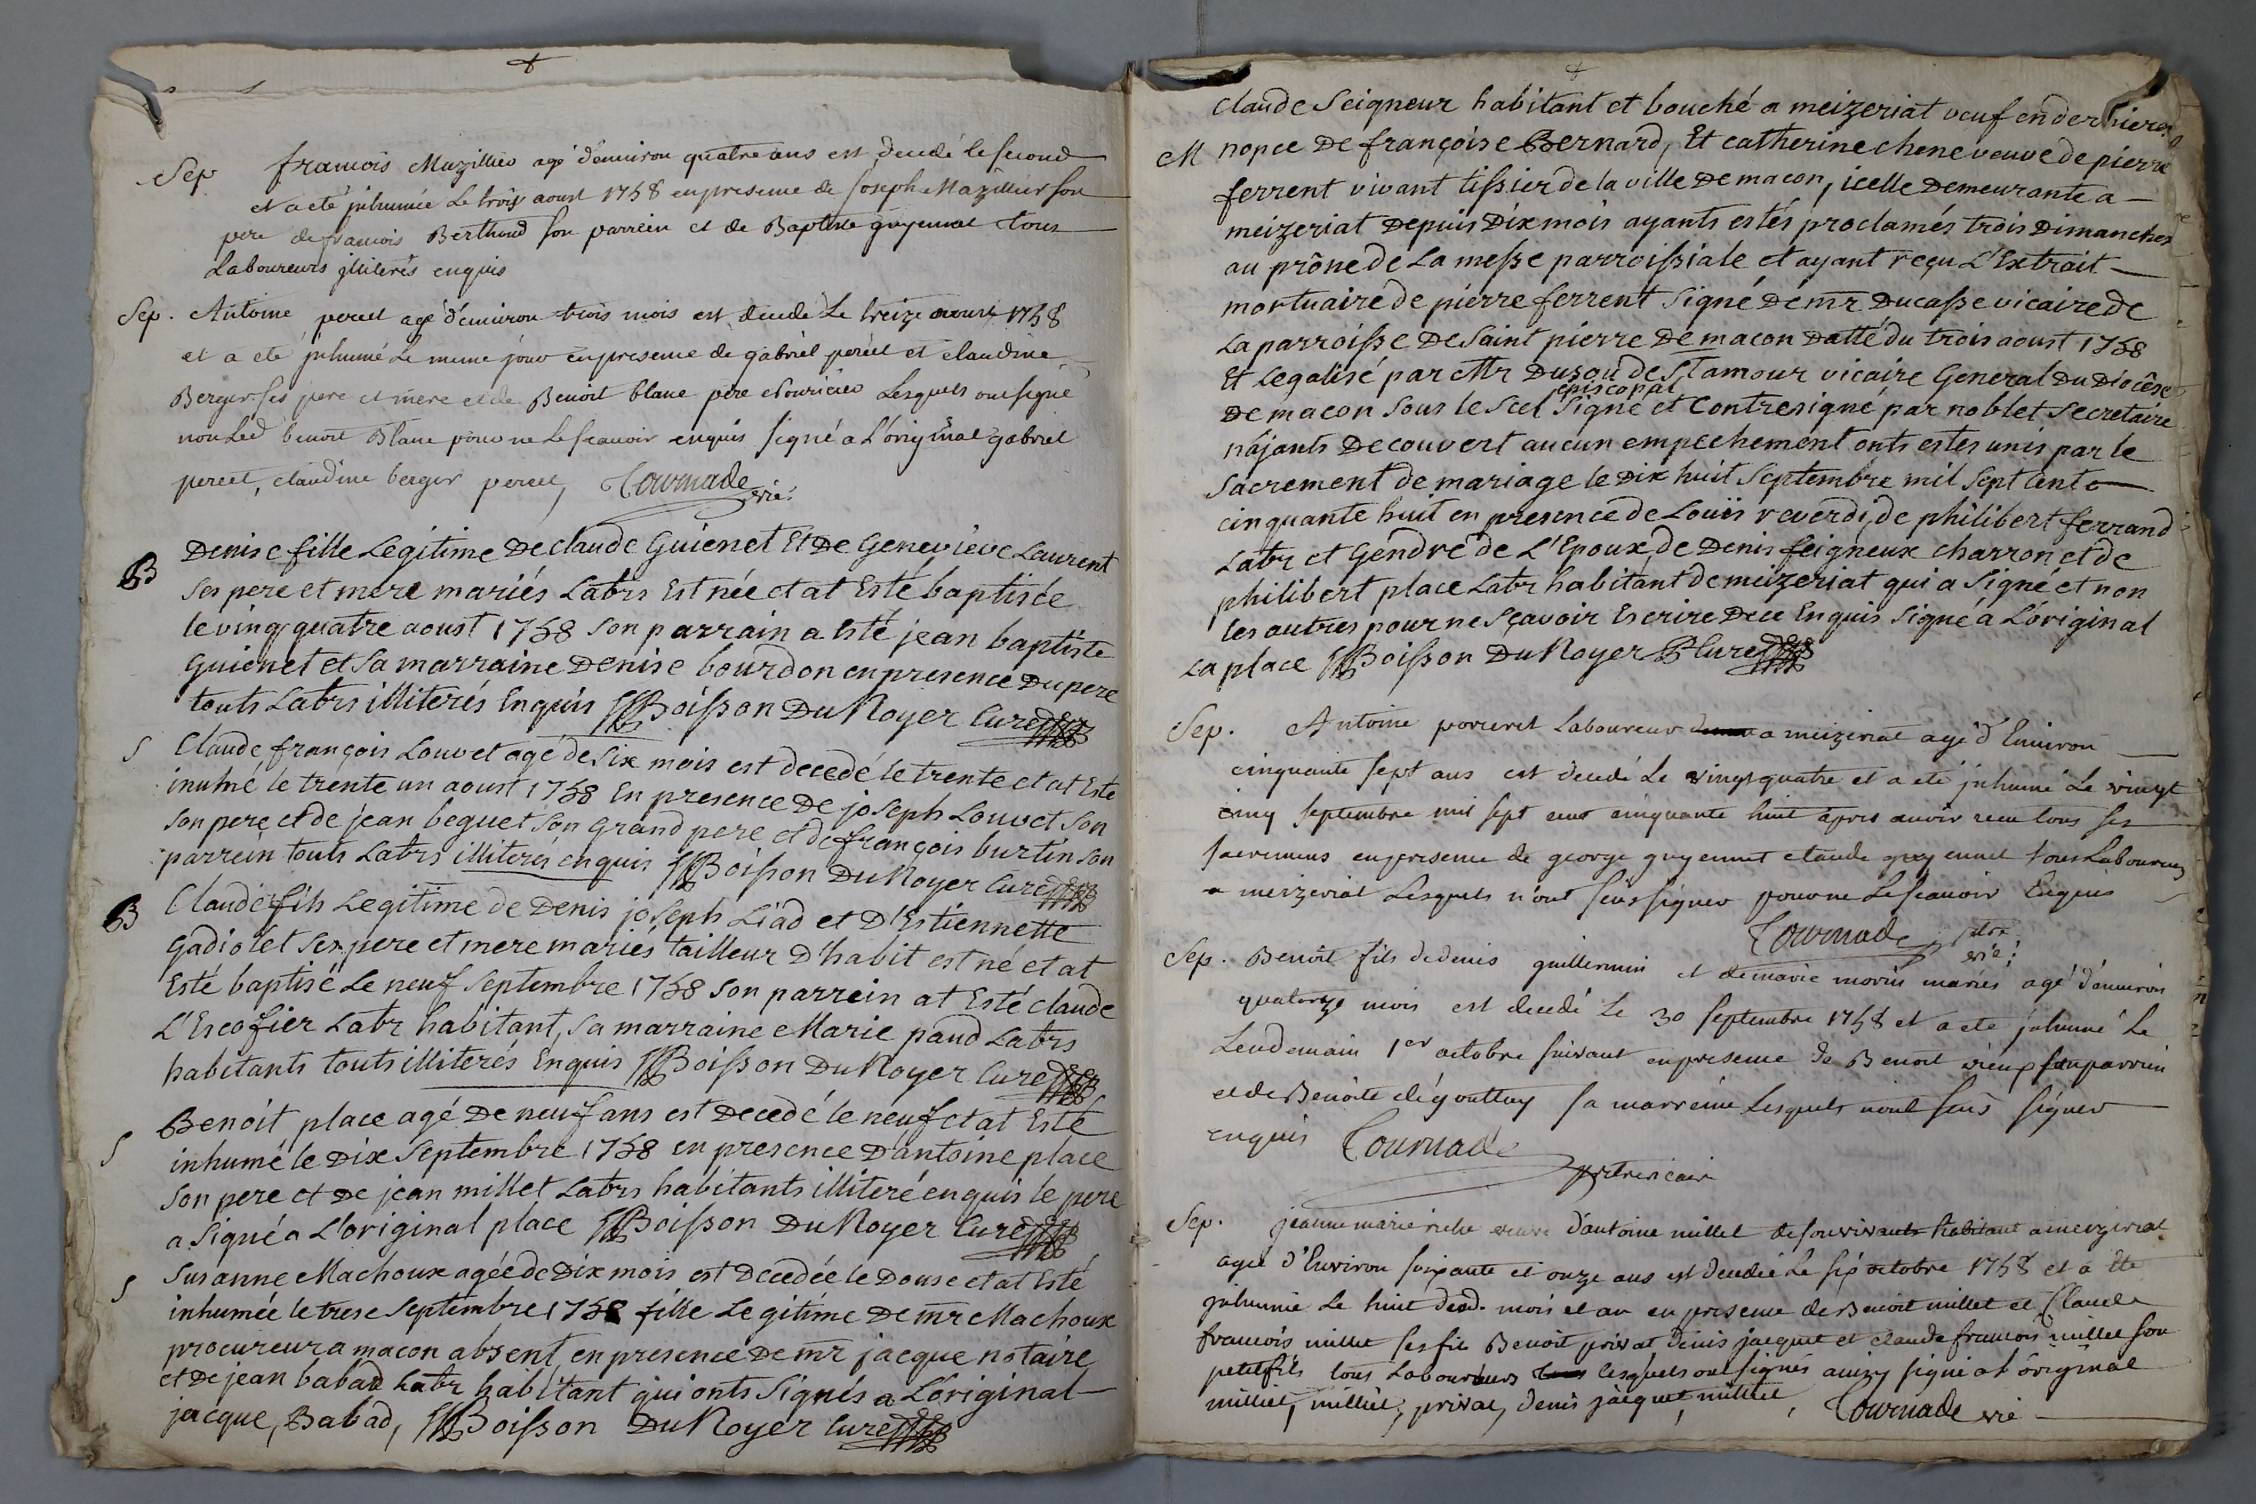 Sep françois Mazillier agé d'environ quatre ans est decedé le second
et a eté jnhumée Le trois aoust 1758 en presence de joseph Mazillier son
pere de francois Berthoud son parrein et de Baptiste guyennet tous
Laboureurs jlliterés enquis
Sep. Antoine percet agé d'environ trois mois est decedé Le treize aoust 1758
et a eté jnhumé Le meme jour en presence de gabriel percet et claudine
Berger ses pere et mere et de Benoit blanc pere nouricier Lesquels ont signé
non Led benoit Blanc pour ne Le scauoir enquis signé a L'original gabriel
percet, claudine berger percet, Tournade vic:
B Denise fille Legitime De claude Guienet Et De Geneviéve Laurent
ses pere et mere mariés Labrs Est née et at Esté baptisée
le vingt quatre aoust 1758 son parrain a Esté jean baptiste
Guienet et sa marraine Denise bourdon en presence Du pere
touts Labrs illiterés Enquis Boisson Du Noyer Curé
S Claude françois Louvet agé de six mois est decedé le trente et at Esté
inuhmé le trente un aoust 1758 En presence De joseph Louvet son
son pere et de jean beguet son Grand pere et de françois burtin son
parrein touts Labrs illiterés enquis Boisson Du Noyer Curé
B Claude fils Legitime de Denis joseph Liad et D'Estiennette
Gadiolet ses pere et mere mariés tailleur D'habit est né et at
Esté baptisé Le neuf Septembre 1758 son parrein at Esté claude
L'Escofier Labr habitant, sa marraine Marie paud Labrs
habitants touts illiterés Enquis Boisson Du Noyer Curé
S Benoit place agé De neuf ans est Decedé le neuf et at Esté
inhumé le Dix Septembre 1758 en presence D'antoine place
son pere et De jean millet Labrs habitants illiteré enquis le pere
a signé a L'original place Boisson Du Noyer Curé
S Susanne Machoux agée de Dix mois est Decedée le Douse et at Esté
inhumée le trese Septembre 1758 fille Legitime De mr Machoux
procureur a macon absent, en presence De mr jacque notaire
et De jean babad Labr habitant qui onts Signés a L'original
jacque, Babad, Boisson Du Noyer Curé
claude Seigneur habitant et bouché a meizeriat veuf en derhiere
M nopce De françoise Bernard, Et catherine chene veuve de pierre
ferrent vivant tissier de la ville De macon, icelle Demeurante a
meizeriat Depuis Dix mois ayants estés proclamés trois Dimanches
au prône de La messe parroissiale et ayant reçu L'Extrait
mortuaire de pierre ferrent signé De mr Ducasse vicaire de
La parroisse De Saint pierre De macon Datté du trois aoust 1758
Et Legalisé par Mr Dusou de St amour vicaire General Du Diocêse
episcopal
De macon sous le scel signé et contresigné par noblet Secretaire
n'ajants Decouvert aucun empechement onts estes unis par le
Sacrement de mariage le Dix huit Septembre mil Sept cents
cinquante huit en presence de Louis reverdi, de philibert ferrand
Labr et Gendre de L'Epoux, de Denis feigneux charron et de
philibert place Labr habitant de meizeriat qui a Signé et non
les autres pour ne sçavoir Escrire Dece Enquis Signé a L'original
La place Boisson Du Noyer Curé
Sep. Antoine porceret Laboureur a meizeriat agé d'Environ
cinquante sept ans est decedé Le vingt quatre et a eté jnhumé Le vingt
cinq septembre mil sept cent cinquante huit apres auoir recu tous ses
sacremens en presence de george guyennet claude guyennet tous Laboureurs
a meizeriat Lesquels n'ont seus signer pour ne Le scauoir Enquis
Tournade ptre
vic:
Sep. Benoit fils de denis guillermin et de marie morin mariés agé d'environ
quatorze mois est decedé Le 30 septembre 1758 et a eté jnhumé Le
Lendemain 1er octobre suivant en presence de Benoit vieux son parrein
et de Benoite degouttay sa marreine Lesquels n'ont seus signer
enquis Tournade
ptre vicair
Sep. jeanne marie veuve d'antoine millet de son vivant habitant a meizeriat
agée d'Environ soixante et onze ans est decedée Le six octobre 1758 et a Ete
jnhumée Le huit dud. mois et an en presence de Benoit millet et Claude
francois millet ses fils Benoit privat denis jacquet et claude francois millet son
petit fils tous Laboureurs lesquels ont signés signé a L'original
milliet, milliet, privat, denis jacquet, milliet, Tournade vic